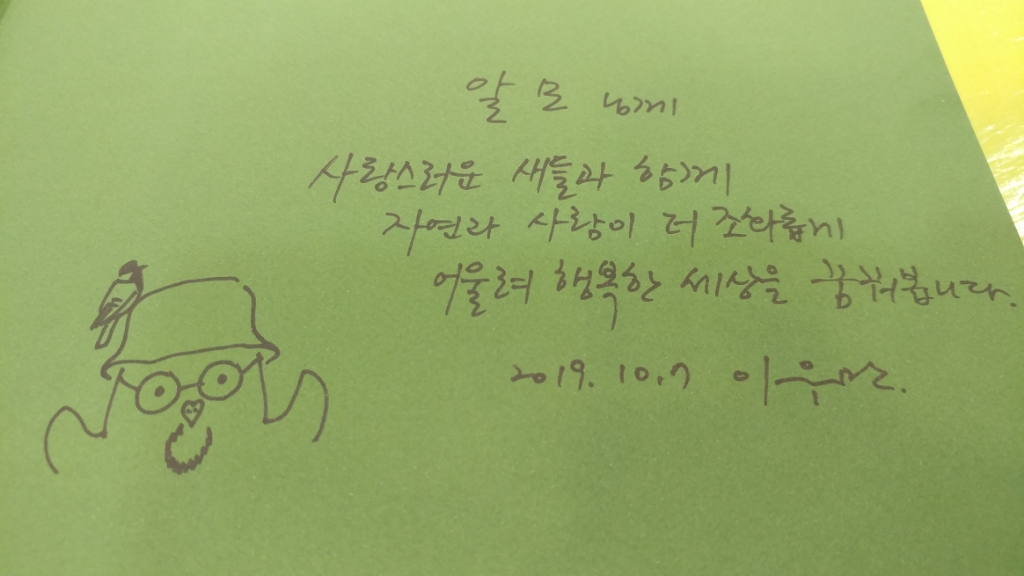 알모 님께
사랑스러운 새들과 함께
자연과 사람이 더 조화롭게
어울려 행복한 세상을 꿈꿔봅니다.
2019. 10. 7 이우만.